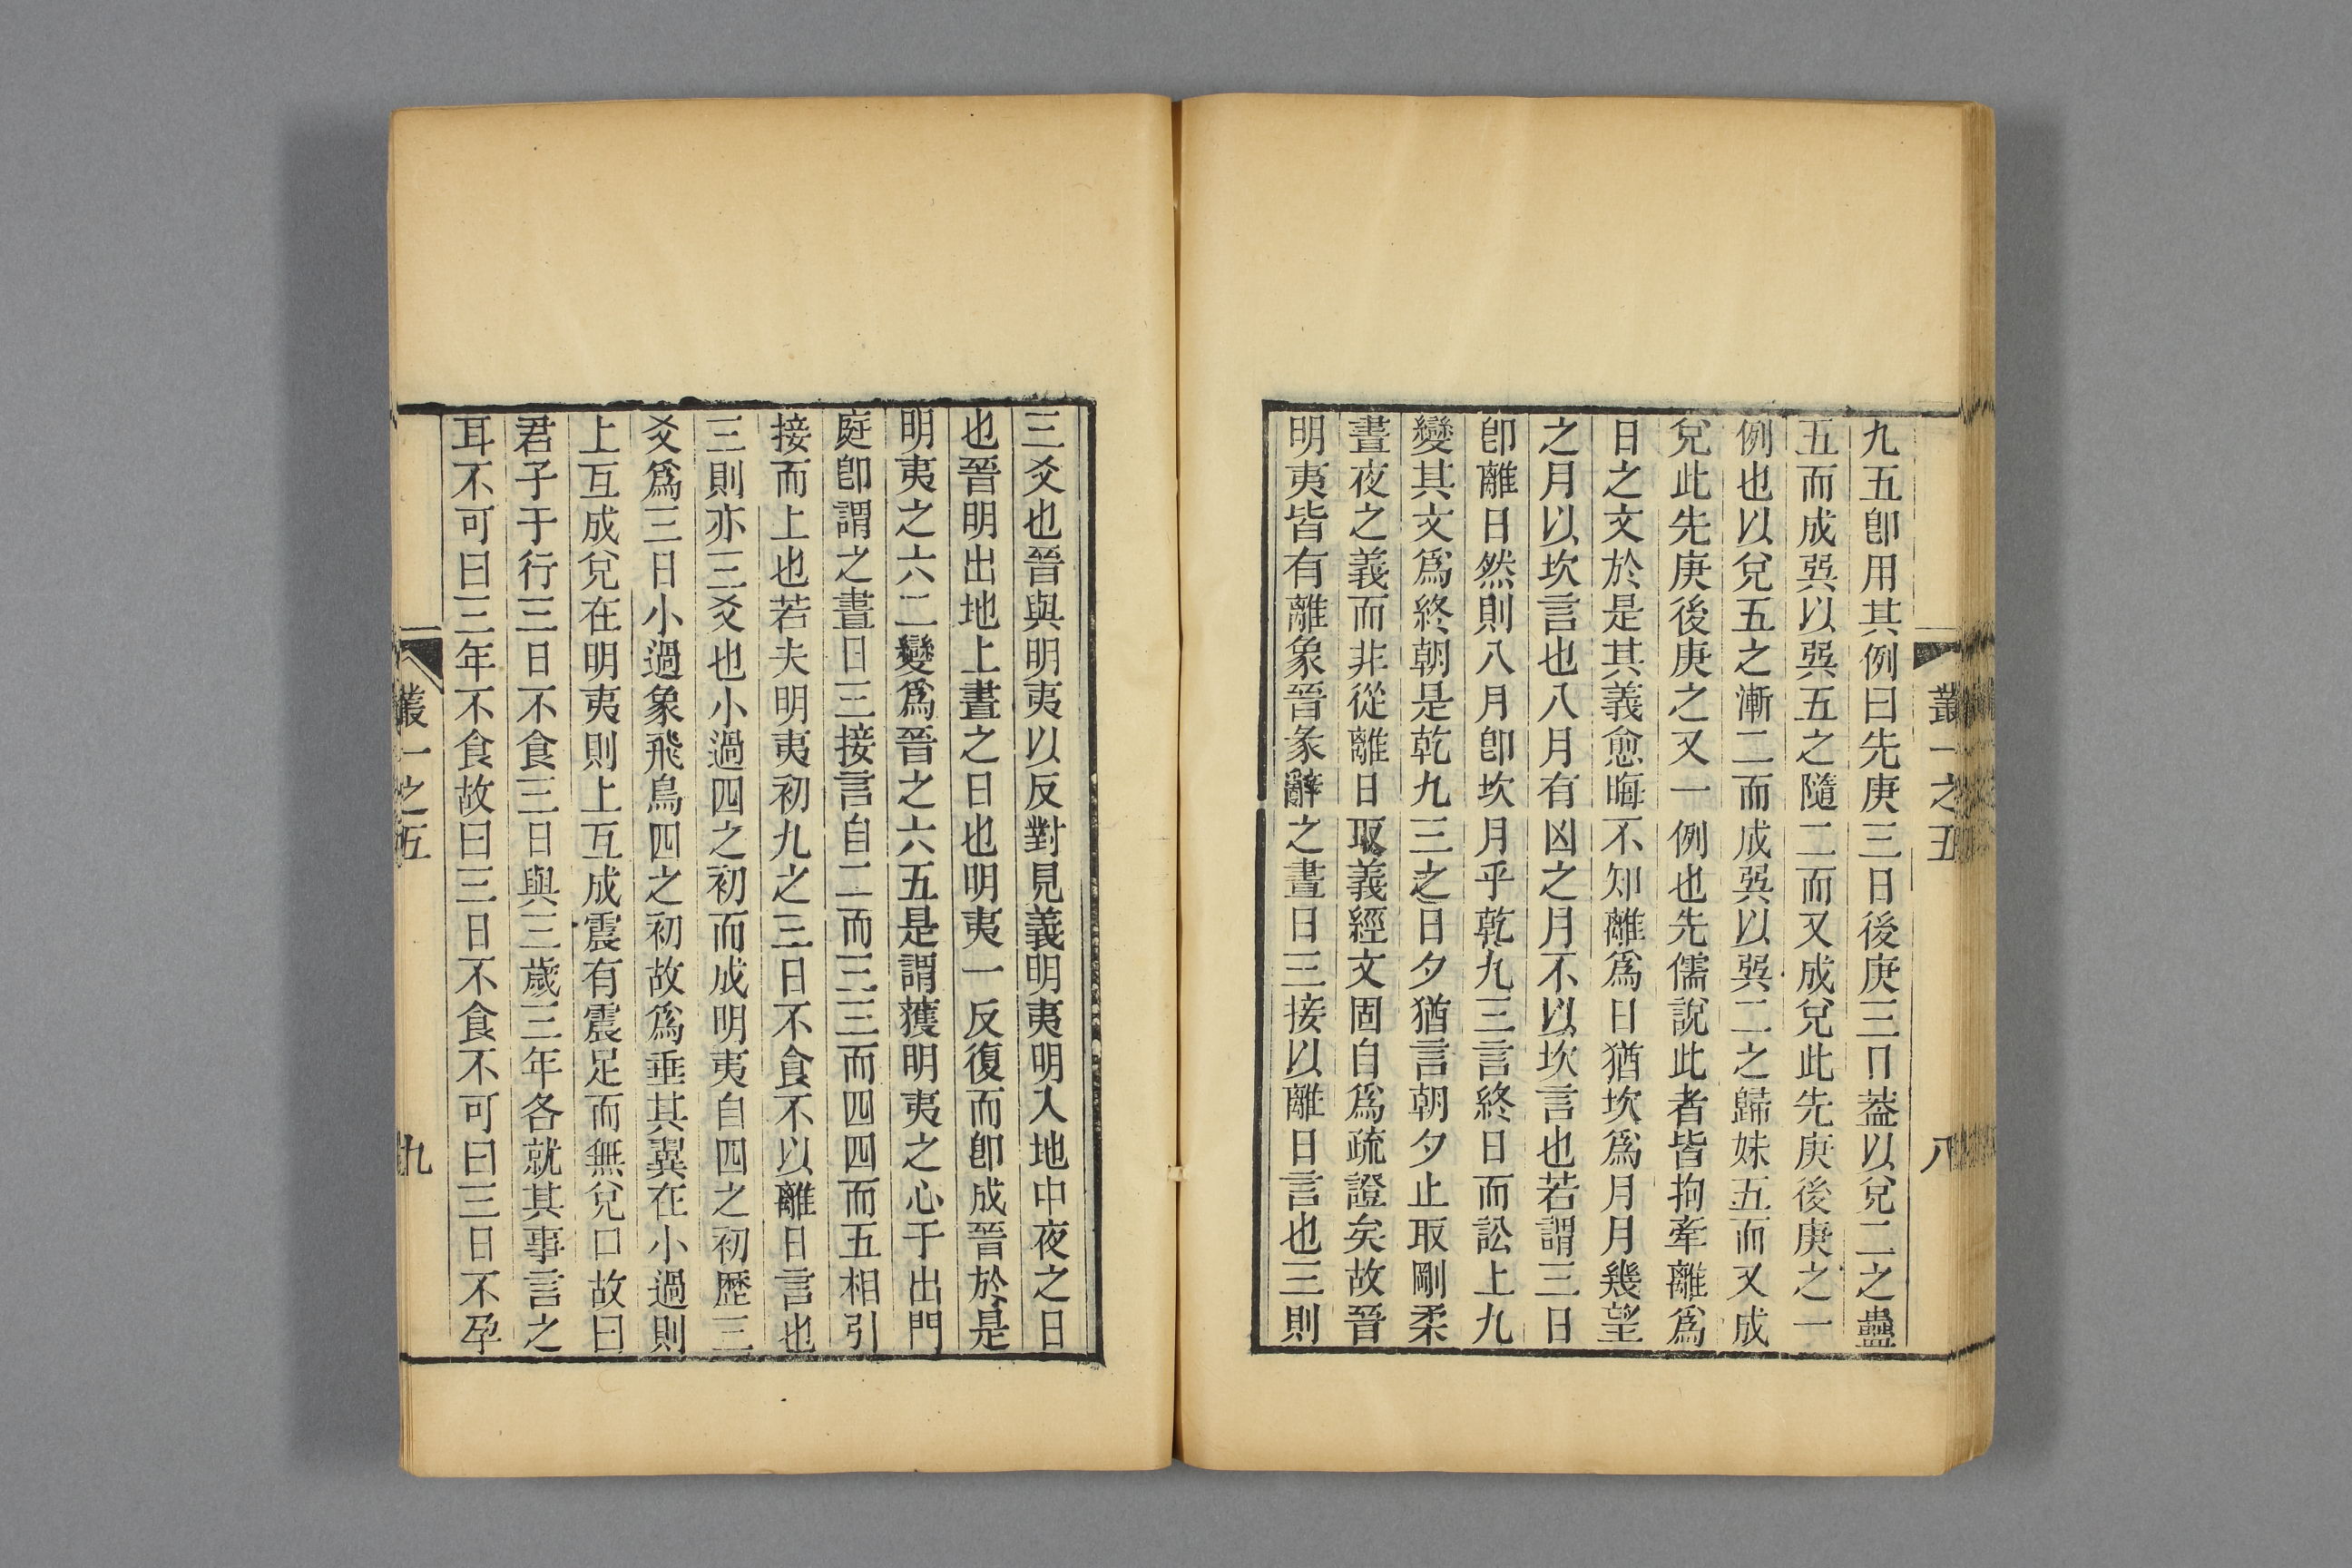 叢一之五
八
九五卽用其例曰先庚三日後庚三日葢以兌二之蠱
五而成㢲以㢲五之隨二而又成兌此先庚後庚之一
例也以兌五之漸二而成㢲以㢲二之歸妹五而又成
兌此先庚後庚之又一例也先儒說此者皆拘牽離爲
日之文於是其義愈晦不知離爲日猶坎爲月月幾望
之月以坎言也八月有凶之月不以坎言也若謂三日
卽離日然則八月卽坎月乎乾九三言終日而訟上九
變其文爲終朝是乾九三之日夕猶言朝夕止取剛柔
晝夜之義而非從離日取義經文固自爲疏證矣故晉
明夷皆有離象晉彖辭之晝日三接以離日言也三則
三爻也晉與明夷以反對見義明夷明入地中夜之日
也晉明出地上晝之日也明夷一反復而卽成晉於是
明夷之六二變爲晉之六五是謂獲明夷之心于出門
庭卽謂之晝日三接言自二而三三而四四而五相引
接而上也若夫明夷初九之三日不食不以離日言也
三則亦三爻也小過四之初而成明夷自四之初歷三
爻爲三日小過象飛鳥四之初故爲垂其翼在小過則
上互成兌在明夷則上互成震有震足而無兌口故曰
君子于行三日不食三日與三歲三年各就其事言之
耳不可曰三年不食故曰三日不食不可曰三日不孕
叢一之五
九